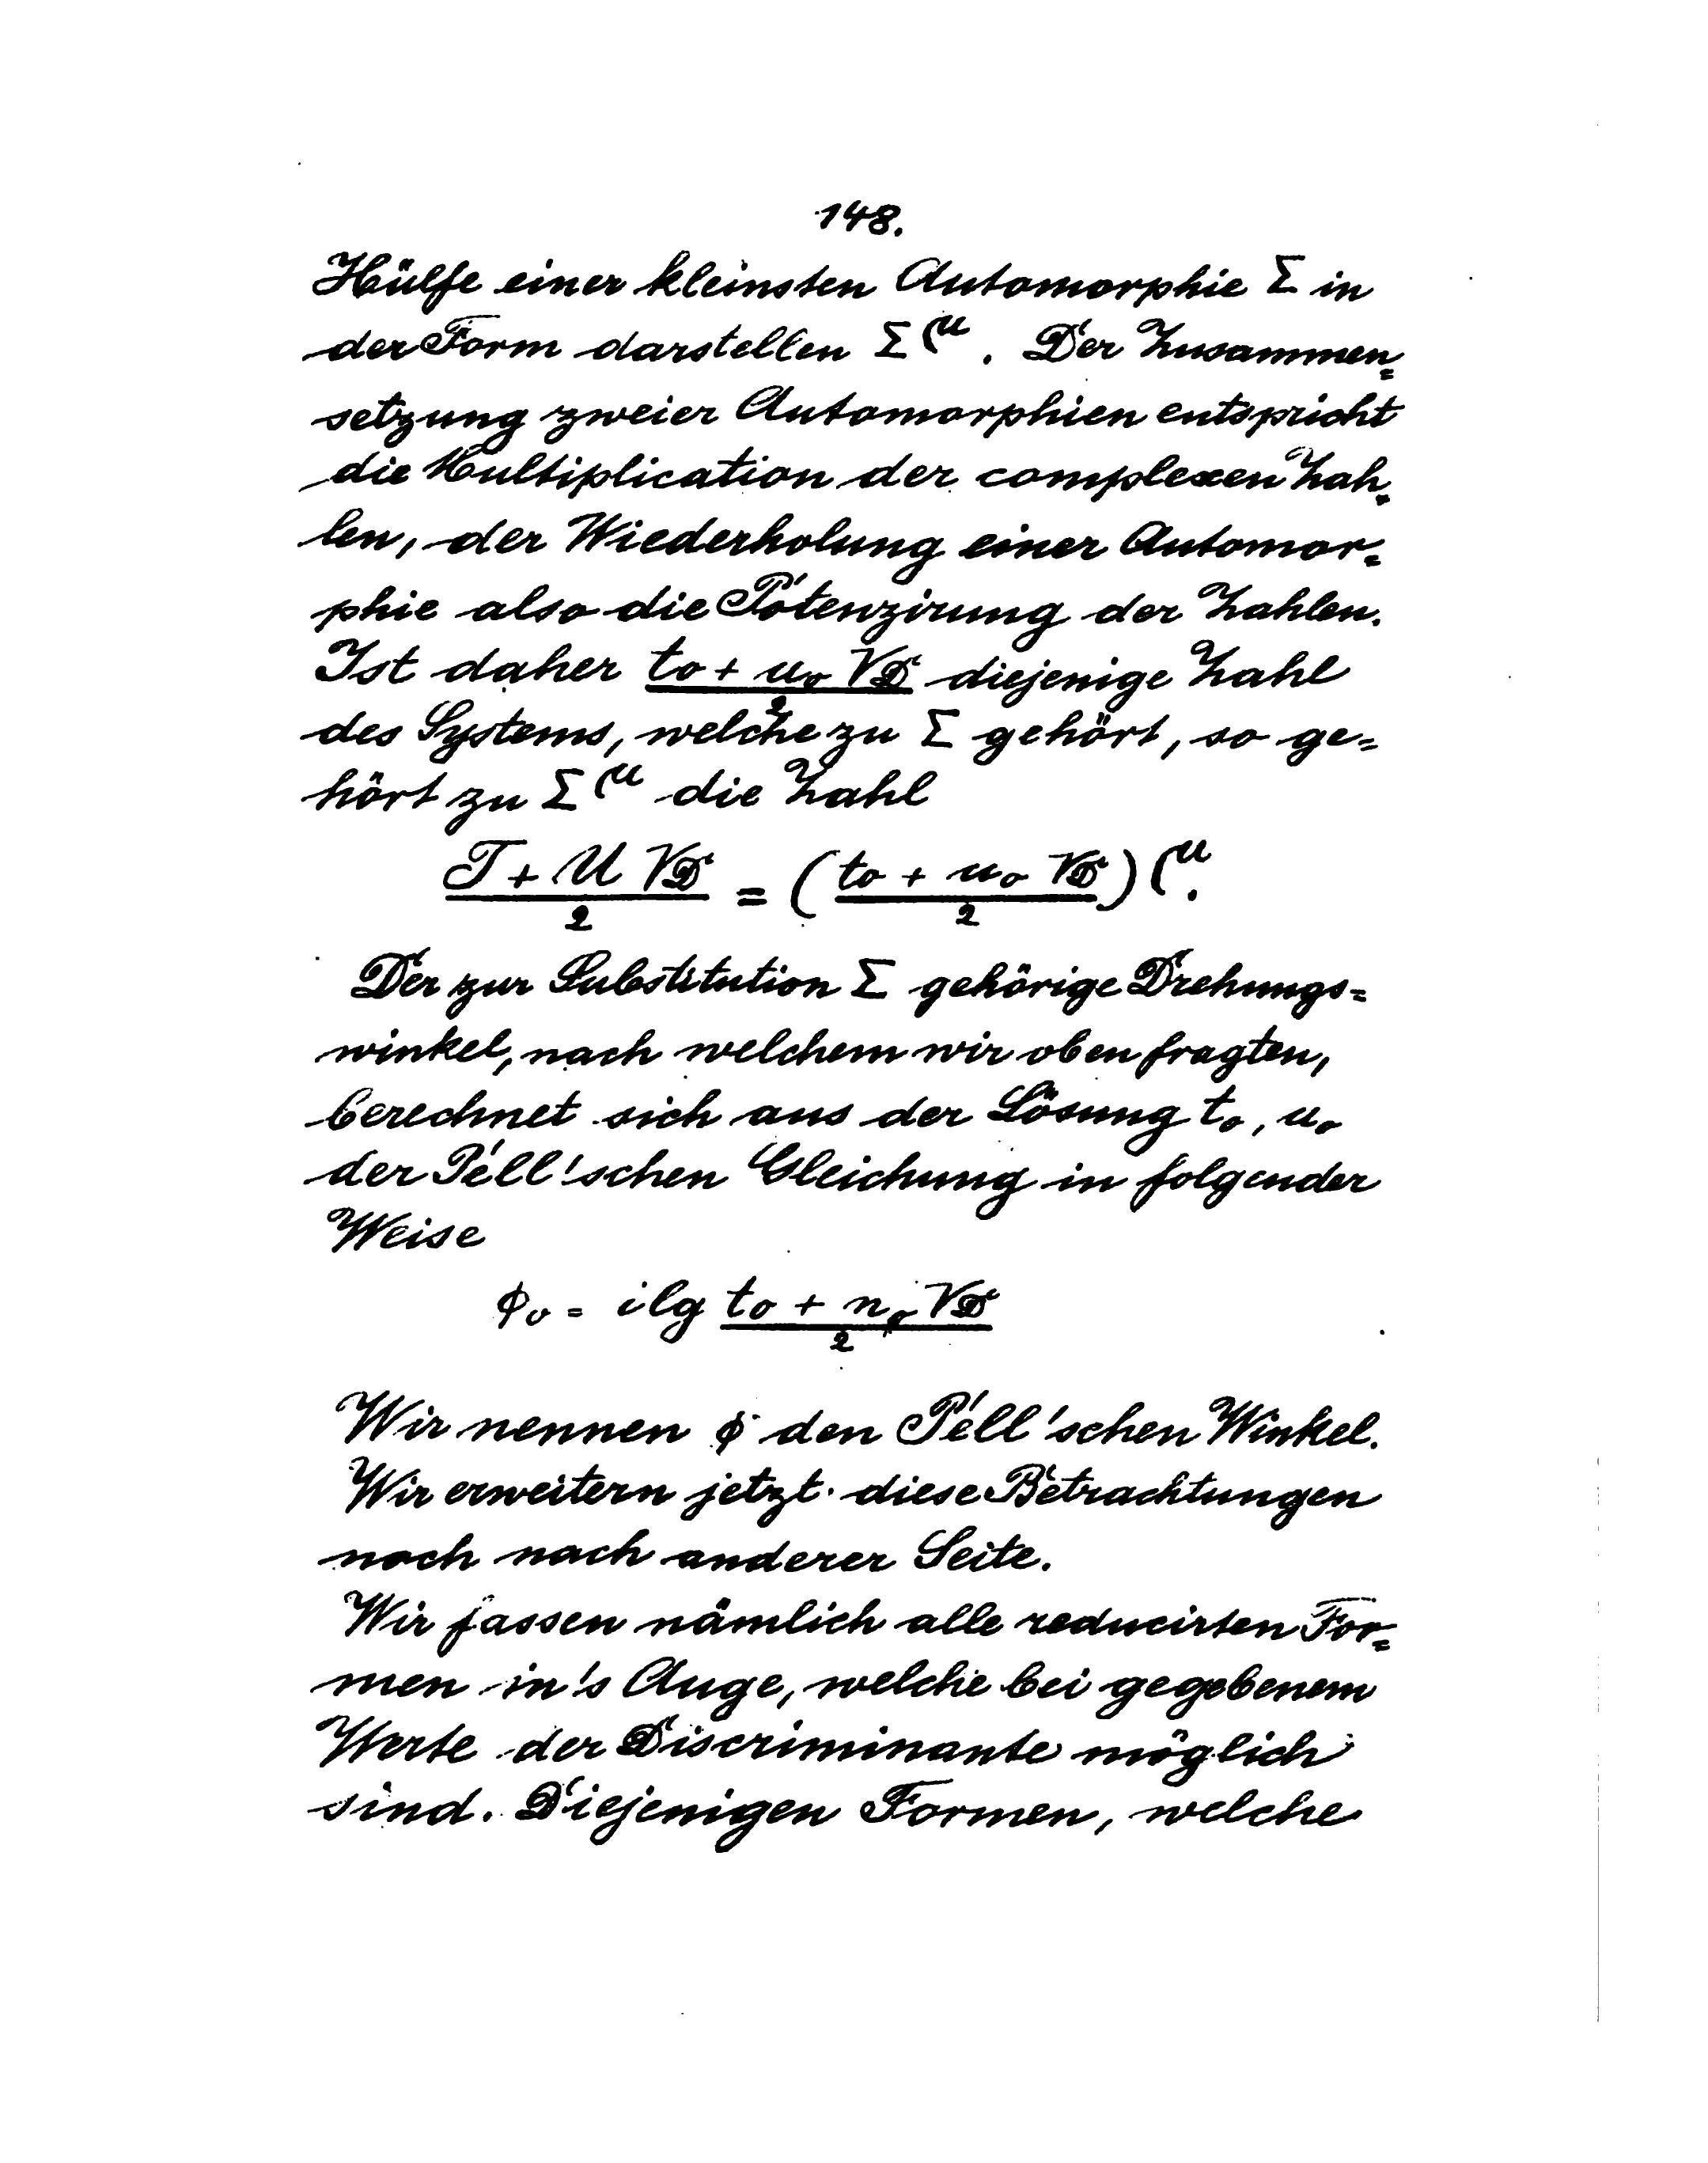 148.
Hülfe einer kleinsten Automorphie Σ in
der Form darstellen Σ^μ. Der Zusammen=
setzung zweier Automorphien entspricht
die Multiplication der complexen Zah=
len, der Wiederholung einer Automor=
phie also die Potenzirung der Zahlen.
Ist daher (t₀ + u₀ √D)/2 diejenige Zahl
des Systems, welche zu Σ gehört, so ge=
hört zu Σ^μ die Zahl
(T + U √D)/2 = ((t₀ + u₀ √D)/2)^μ.
Der zur Substitution Σ gehörige Drehungs=
winkel, nach welchem wir oben fragten,
berechnet sich aus der Lösung t₀, u₀
der Pell'schen Gleichung in folgender
Weise
ϕ₀ = i lg (t₀ + u₀ √D)/2
Wir nennen ϕ den Pell'schen Winkel.
Wir erweitern jetzt diese Betrachtungen
noch nach anderer Seite.
Wir fassen nämlich alle reducirten For=
men in's Auge, welche bei gegebenem
Werte der Discriminante möglich
sind. Diejenigen Formen, welche